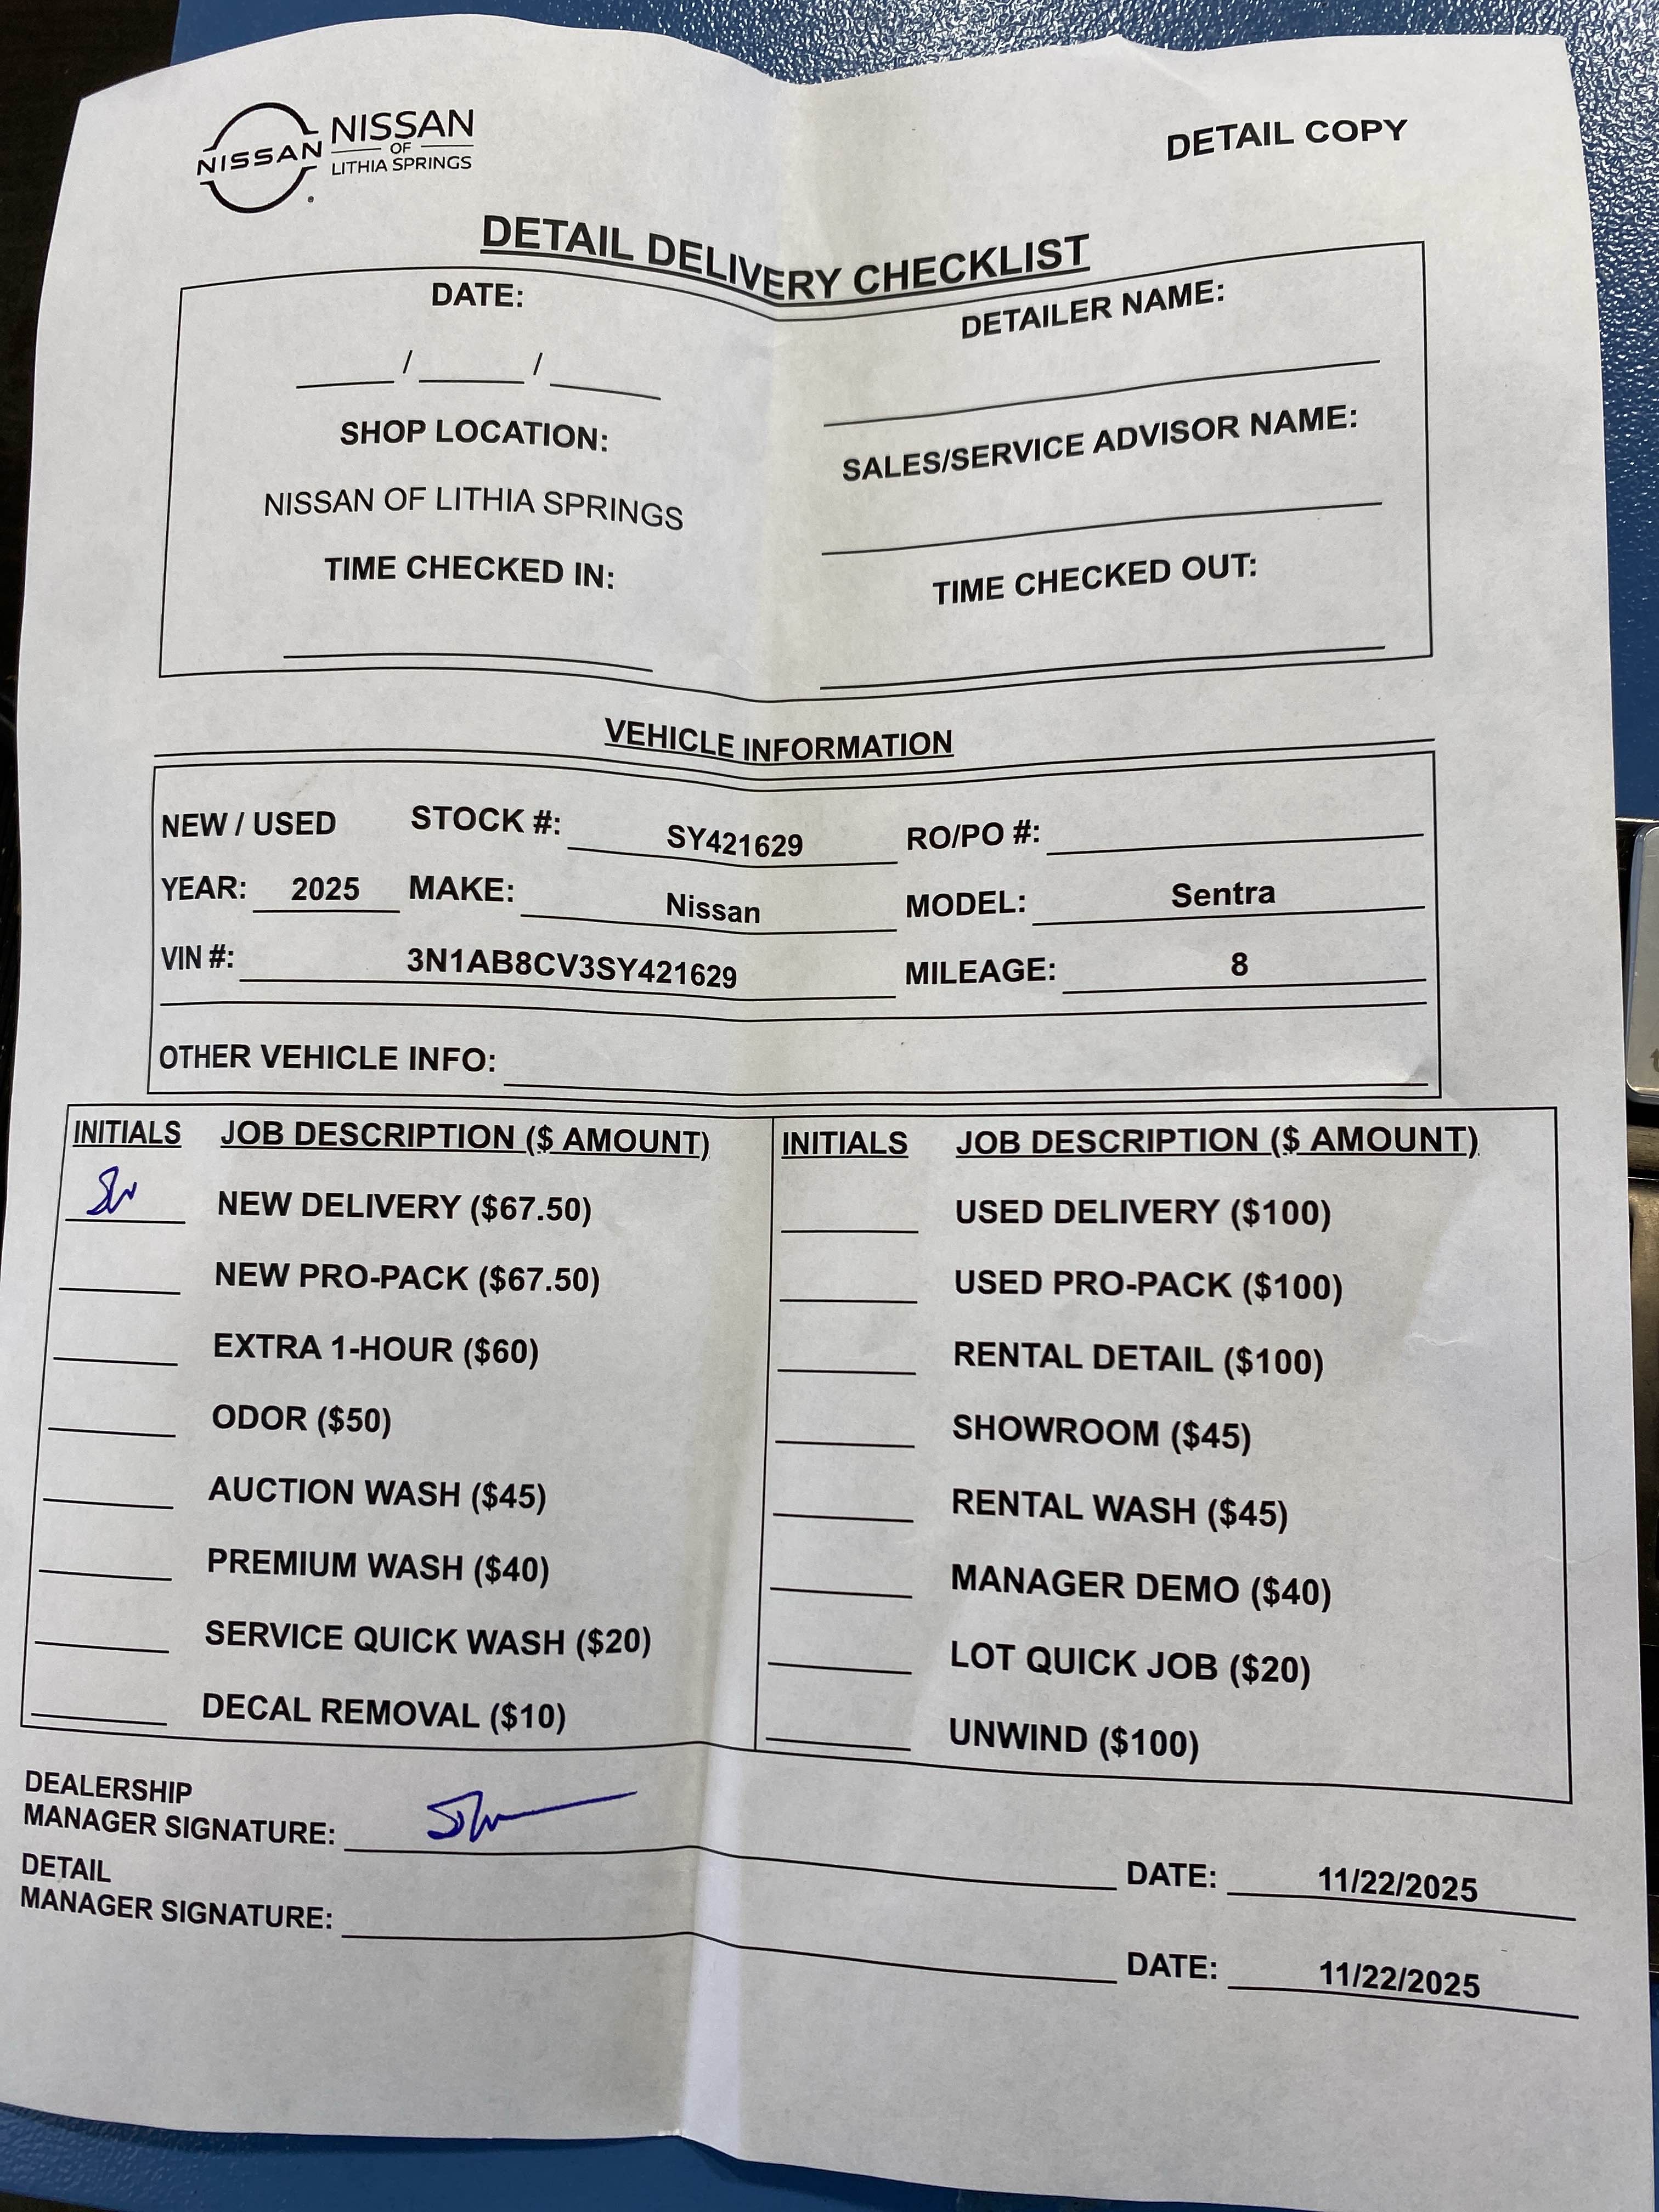 NISSAN
NISSAN
OF
LITHIA SPRINGS
DETAIL COPY
DETAIL DELIVERY CHECKLIST
DATE:
DETAILER NAME:
/ /
SHOP LOCATION:
SALES/SERVICE ADVISOR NAME:
NISSAN OF LITHIA SPRINGS
TIME CHECKED IN:
TIME CHECKED OUT:
VEHICLE INFORMATION
NEW / USED STOCK #: SY421629 RO/PO #:
YEAR: 2025 MAKE: Nissan MODEL: Sentra
VIN #: 3N1AB8CV3SY421629 MILEAGE: 8
OTHER VEHICLE INFO:
INITIALS JOB DESCRIPTION ($ AMOUNT) INITIALS JOB DESCRIPTION ($ AMOUNT)
NEW DELIVERY ($67.50) USED DELIVERY ($100)
NEW PRO-PACK ($67.50) USED PRO-PACK ($100)
EXTRA 1-HOUR ($60) RENTAL DETAIL ($100)
ODOR ($50) SHOWROOM ($45)
AUCTION WASH ($45) RENTAL WASH ($45)
PREMIUM WASH ($40) MANAGER DEMO ($40)
SERVICE QUICK WASH ($20) LOT QUICK JOB ($20)
DECAL REMOVAL ($10) UNWIND ($100)
DEALERSHIP
MANAGER SIGNATURE: DATE: 11/22/2025
DETAIL
MANAGER SIGNATURE: DATE: 11/22/2025